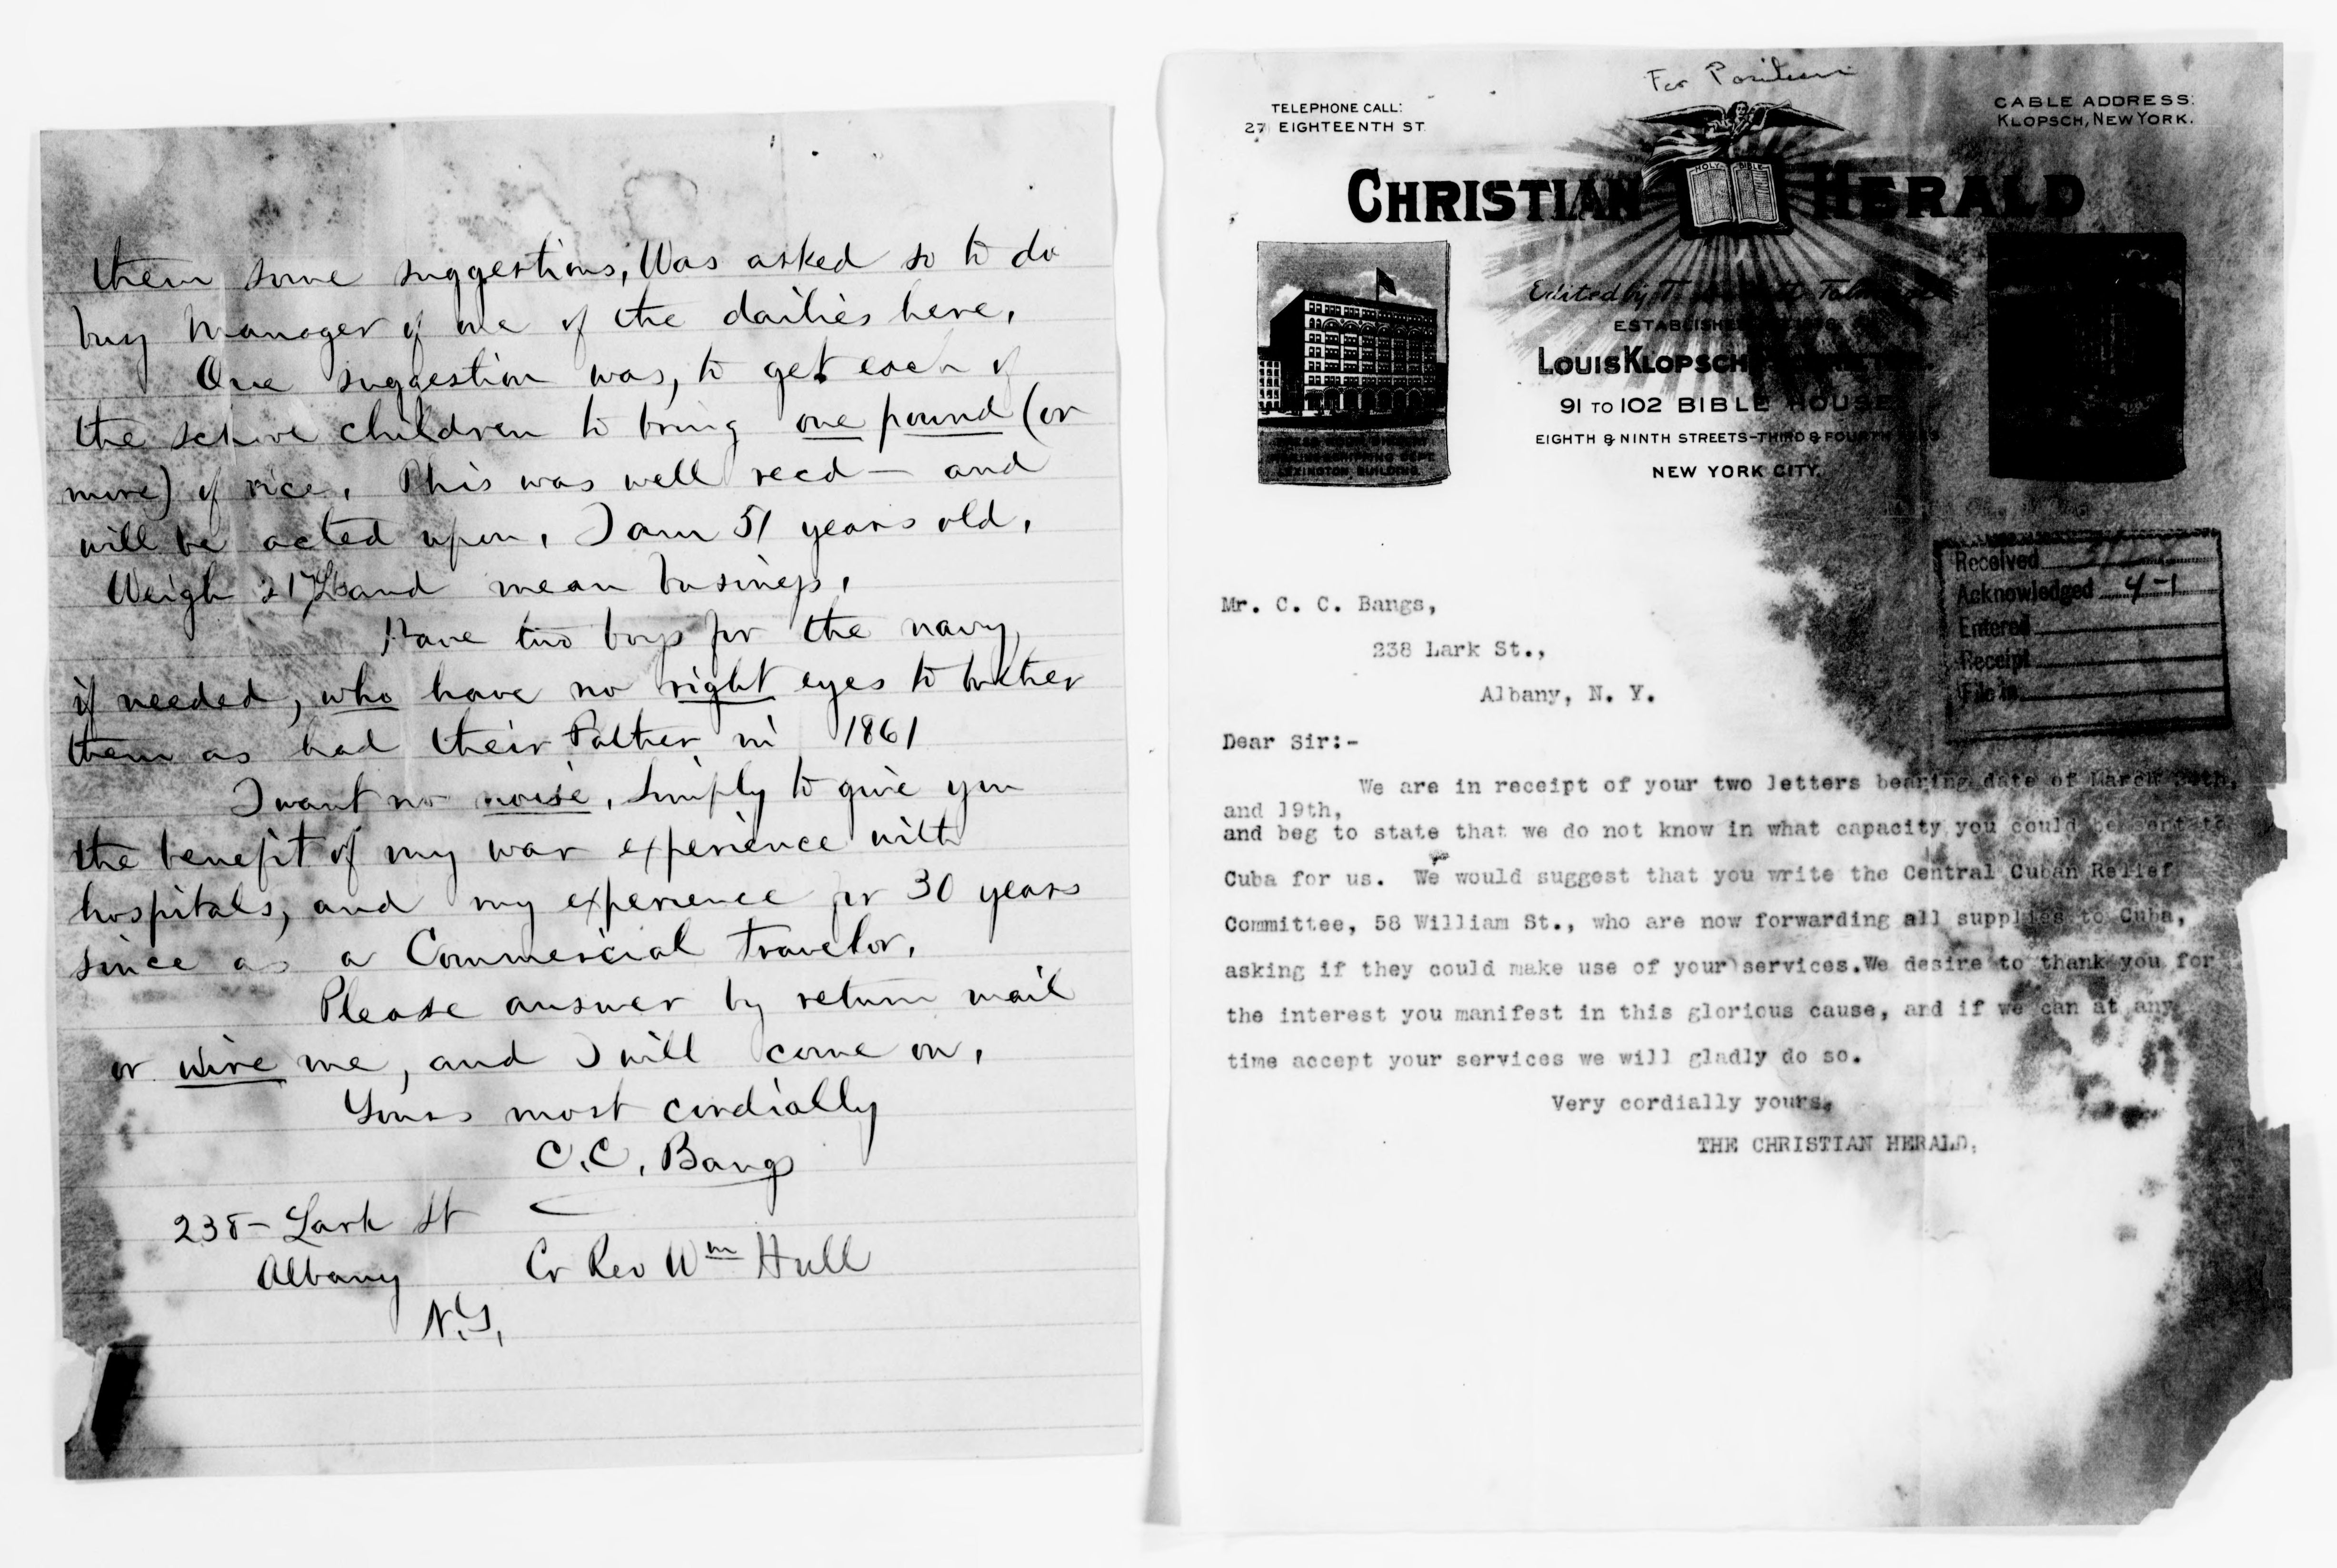 them some suggestions, Was asked so to do
by Manager of one of the dailies here,
One suggestion was, to get each of
the school children to bring one pound (or
more) of rice, This was well recd — and
will be acted upon, I am 51 years old,
Weigh and mean business,
Have two boys for the navy,
if needed, who have no right eyes to bother
them as had their Father in 1861
I want no noise, Simply to give you
the benefit of my war experience with
hospitals, and my experience for 30 years
since as a Commercial travelor,
Please answer by return mail
or wire me, and I will come on,
Yours most cordially
C. C. Bangs
238 – Lark St
Albany
N.Y,
Cr Rev Wm Hull
For Position
TELEPHONE CALL:
27 EIGHTEENTH ST.
CABLE ADDRESS:
KLOPSCH, NEW YORK.
HOLY BIBLE
CHRISTIAN HERALD
Edited by T.
ESTABLISHED
LOUIS KLOPSCH
91 TO 102 BIBLE HOUSE
EIGHTH & NINTH STREETS-THIRD & FOURTH
NEW YORK CITY.
LEXINGTON BUILDING
Received
Acknowledged 4-1
Entered
Receipt
File in
Mr. C. C. Bangs,
238 Lark St.,
Albany, N. Y.
Dear Sir:-
We are in receipt of your two letters bearing date of March
and 19th,
and beg to state that we do not know in what capacity you could be sent to
Cuba for us. We would suggest that you write the Central Cuban Relief
Committee, 58 William St., who are now forwarding all supplies to Cuba,
asking if they could make use of your services.We desire to thank you for
the interest you manifest in this glorious cause, and if we can at any
time accept your services we will gladly do so.
Very cordially yours,
THE CHRISTIAN HERALD,